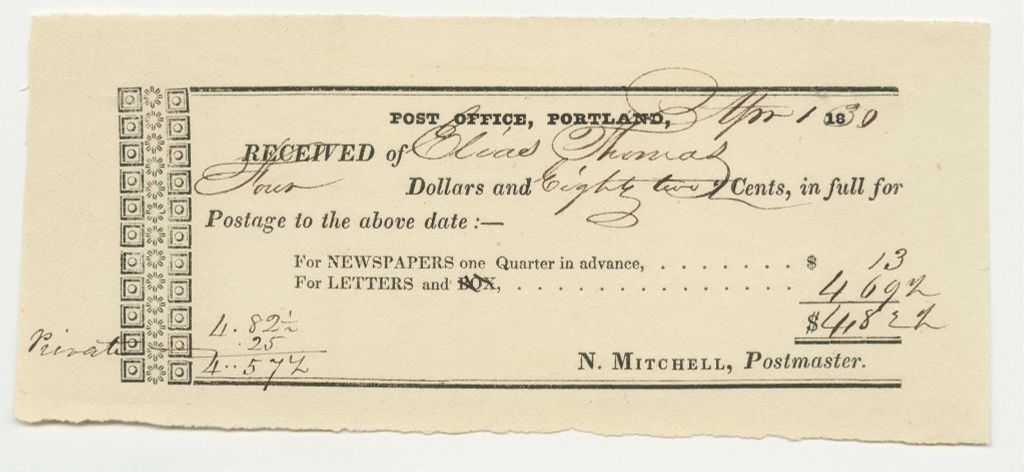 POST OFFICE, PORTLAND, Apr 1 1830
RECEIVED of Elias Thomas
Four Dollars and Eighty two ½ Cents, in full for
Postage to the above date :—
For NEWSPAPERS one Quarter in advance, . . . . . . . $ 13
For LETTERS and BOX, . . . . . . . . . . . . . . 4 69½
$4,82½
4.82½
Private .25
4..57½
N. MITCHELL, Postmaster.